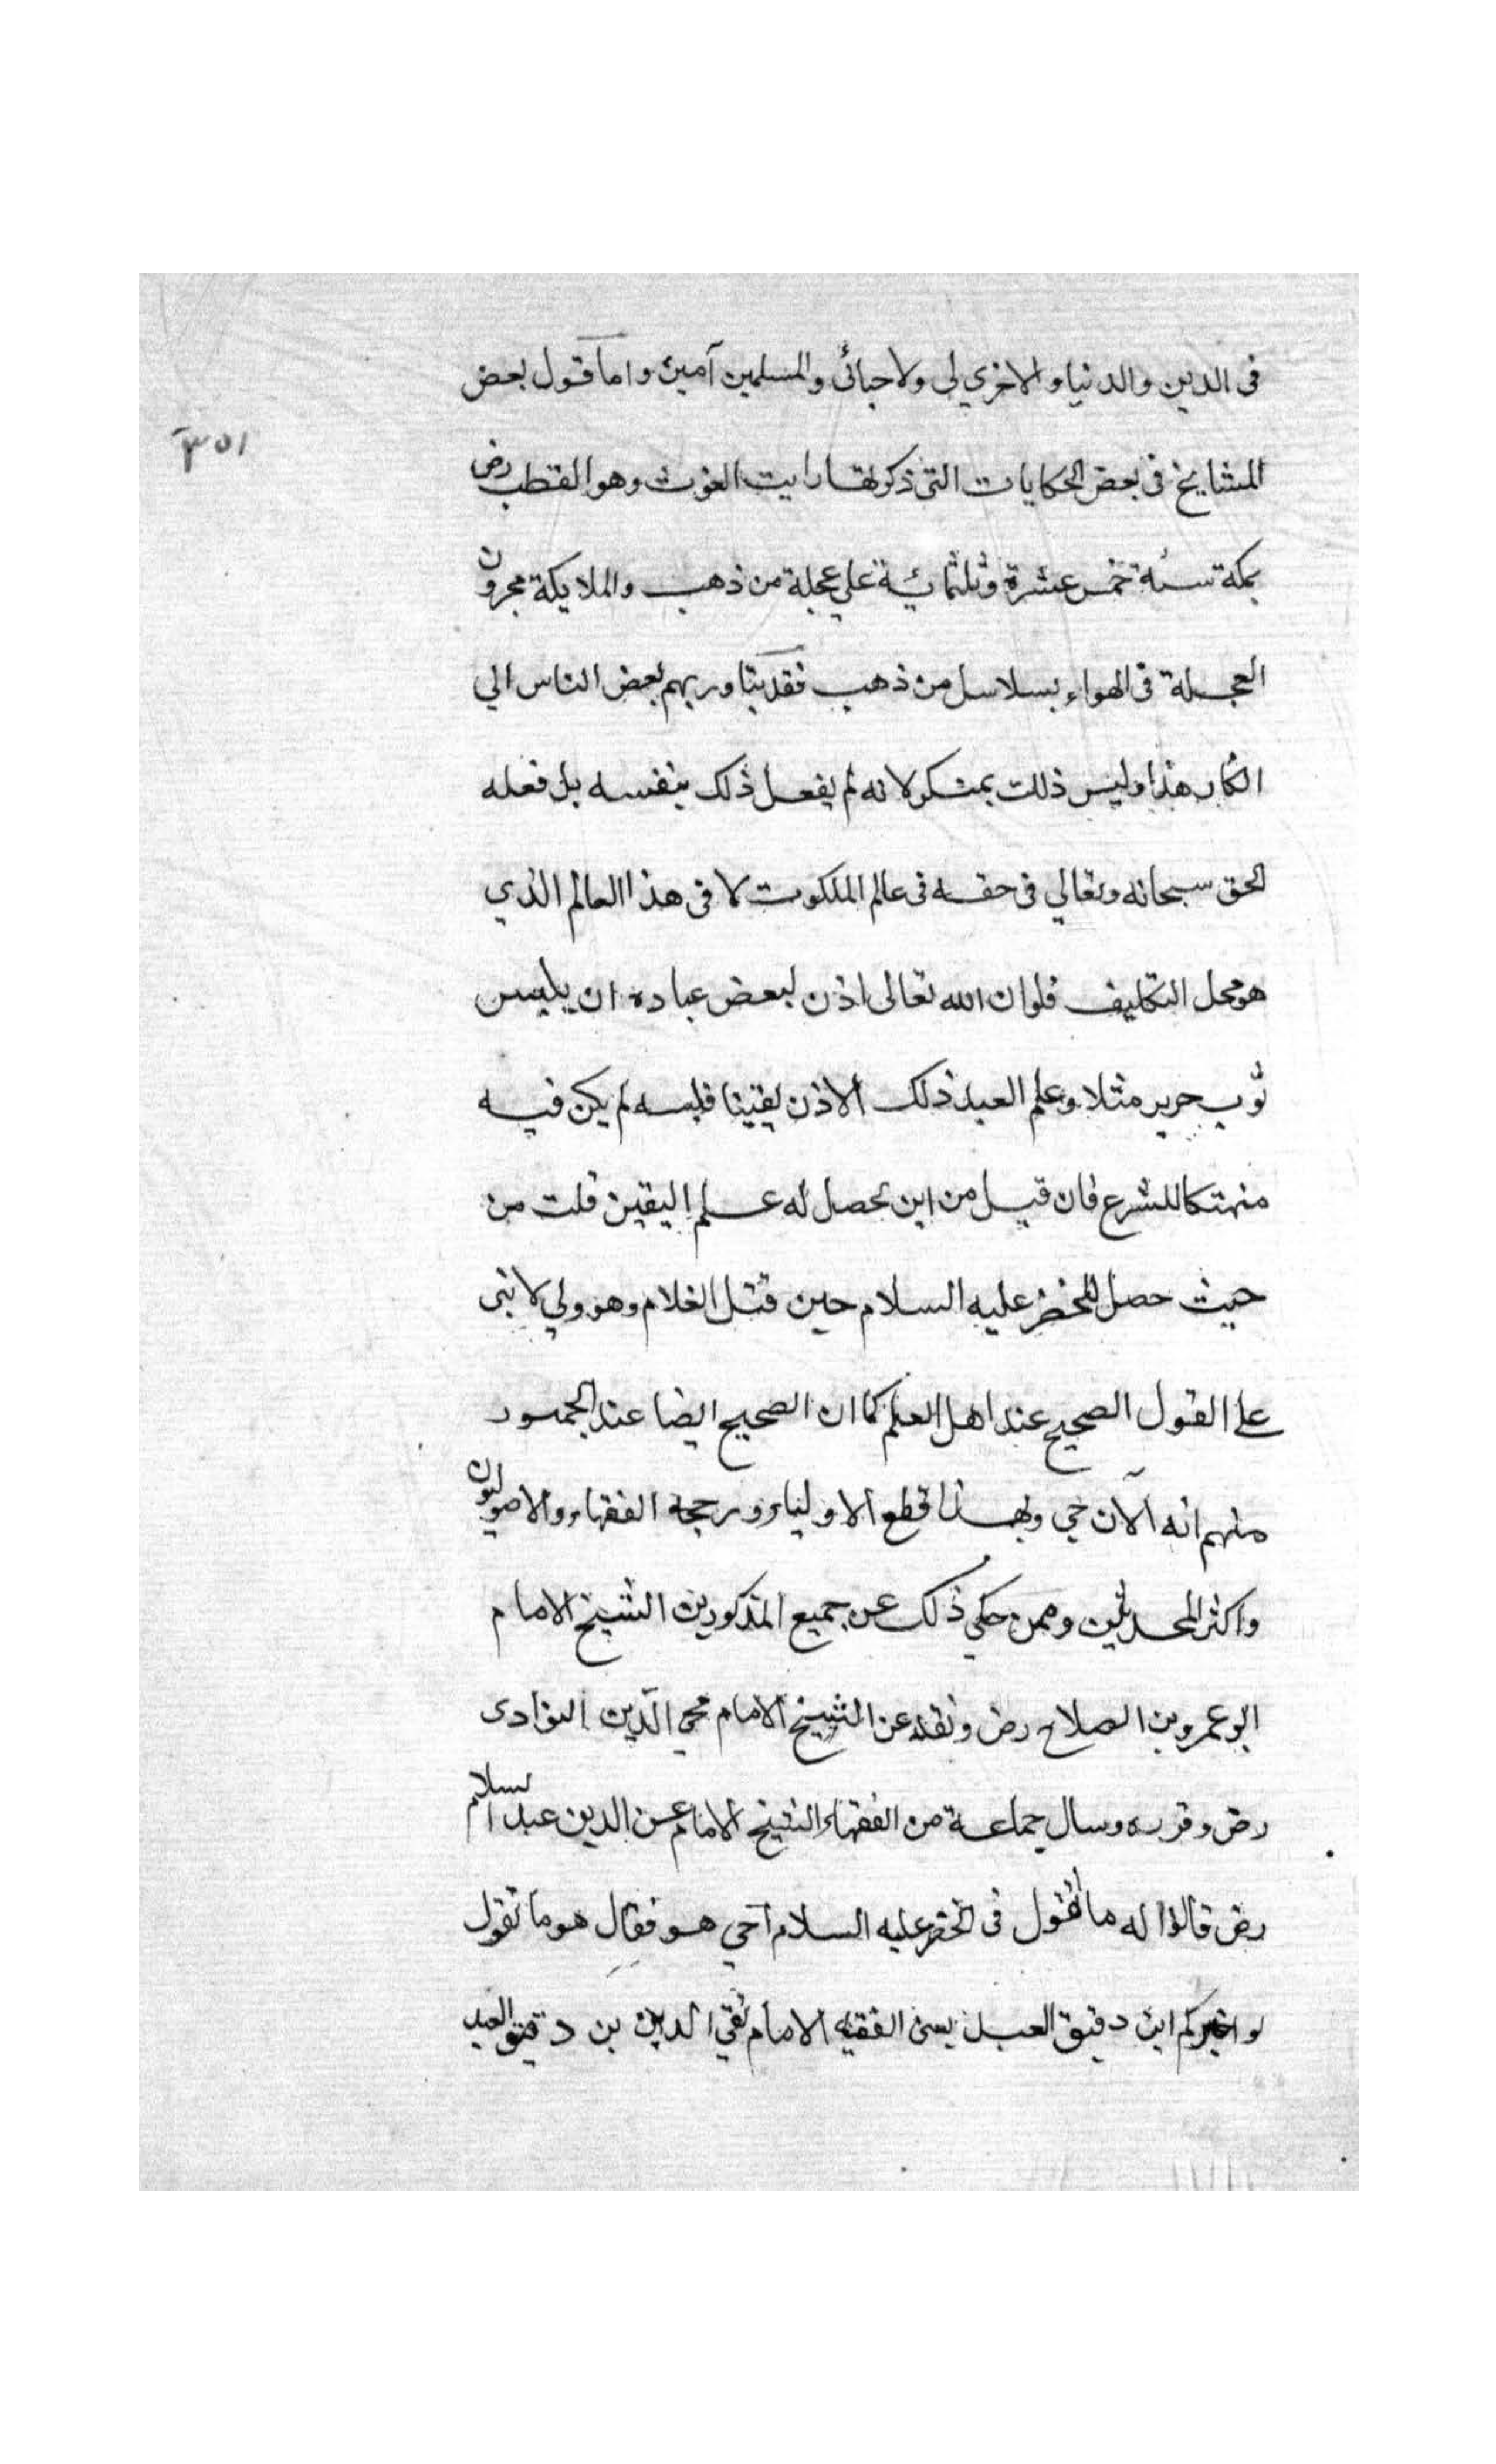 فى الدين والدنيا والاخري لى ولاحبائى والمسلمين آمين واما قول بعض
١٥٣
المشايخ فى بعض الحكايات التى ذكرتها رايت الغوث وهو القطب رض
بمكة سنة خمس عشرة وثلثمائة على عجلة من ذهب والملايكة يجرون
العجلة فى الهواء بسلاسل من ذهب فقد يتبادر بهم بعض الناس الي
انكار هذا وليس ذلك بمنكر لانه لم يفعل ذلك بنفسه بل فعله
الحق سبحانه وتعالي فى حقه فى عالم الملكوت لا فى هذا العالم الذي
هو محل التكليف فلو ان الله تعالى اذن لبعض عباده ان يلبس
ثوب حرير مثلا وعلم العبد ذلك الاذن يقينا فلبسه لم يكن فيه
منهتكا للشرع فان قيل من اين يحصل له علم اليقين قلت من
حيث حصل للخضر عليه السلام حين قتل الغلام وهو ولي لا نبى
على القول الصحيح عند اهل العلم كما ان الصحيح ايضا عند الجمهور
منهم انه الآن حي وبهذا قطع الاولياء ورجحه الفقهاء والاصوليون
واكثر المحدثين وممن حكي ذلك عن جميع المذكورين الشيخ الامام
ابو عمرو بن الصلاح رض ونقله عن الشيخ الامام محي الدين النواوى
رض وقرره وسال جماعة من الفقهاء الشيخ الامام عز الدين عبد السلام
رض قالوا له ما تقول فى الخضر عليه السلام أحي هو فقال هو ما تقول
لو اخبركم ابن دقيق العبد يعنى الفقيه الامام تقي الدين بن دقيق العيد